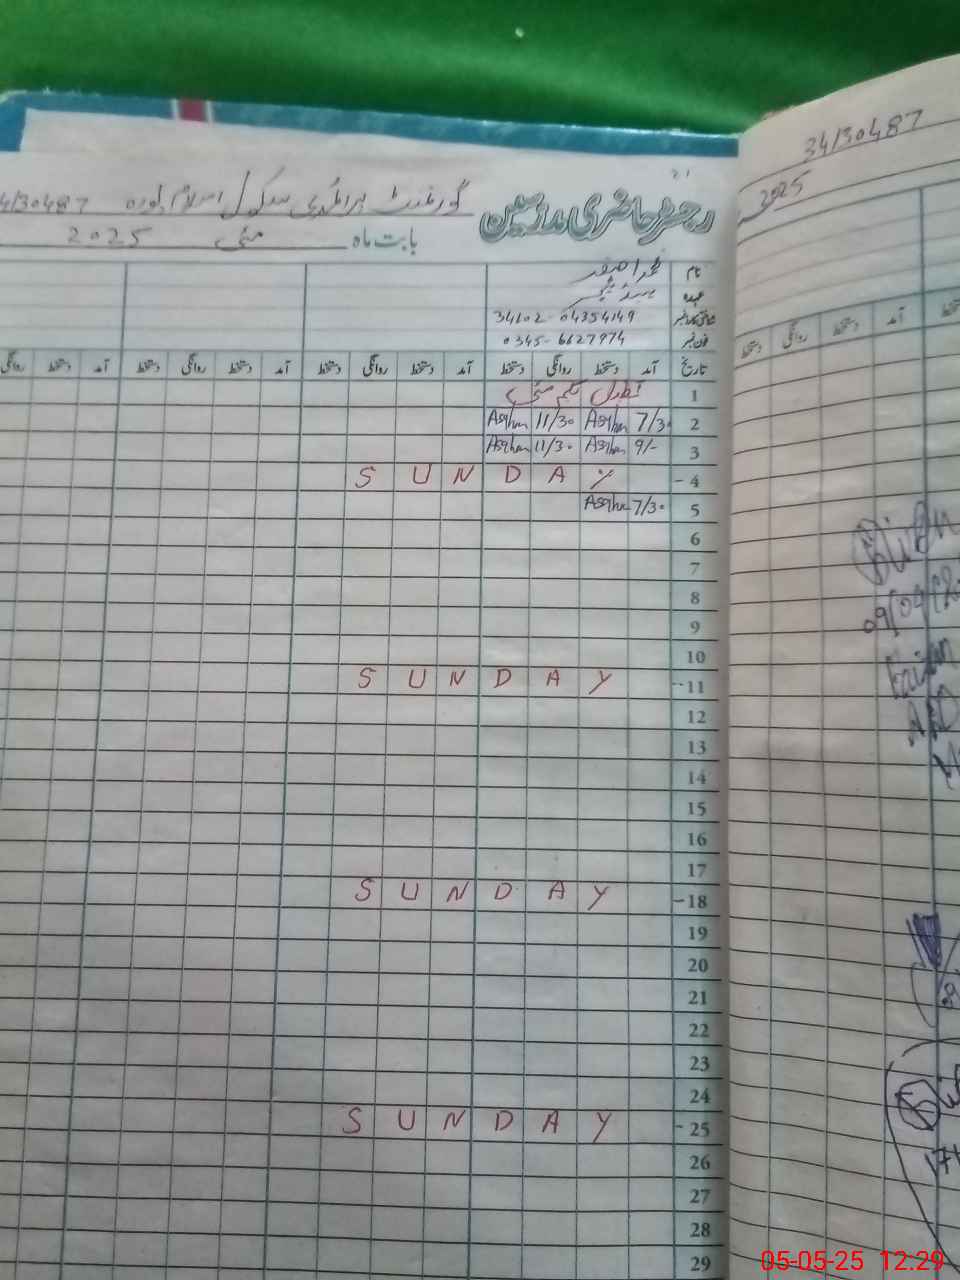 رجسٹر حاضری مدرسین گورنمنٹ پرائمری سکول اسلام پورہ 34130487
بابت ماہ مئی 2025
نام محمد اصغر
عہدہ
شناختی کارڈ نمبر 34102-04354149
فون نمبر 0345-6627974
تاریخ آمد دستخط روانگی دستخط آمد دستخط روانگی دستخط آمد دستخط روانگی دستخط آمد دستخط روانگی
1 تعطیل یکم مئی
2 7/30 Asghar 11/30 Asghar
3 9/- Asghar 11/30 Asghar
4 S U N D A Y
5 7/30 Asghar
6
7
8
9
10
11 S U N D A Y
12
13
14
15
16
17
18 S U N D A Y
19
20
21
22
23
24
25 S U N D A Y
26
27
28
29
34130487
2025
آمد دستخط روانگی دستخط
09/04/
05-05-25 12.29